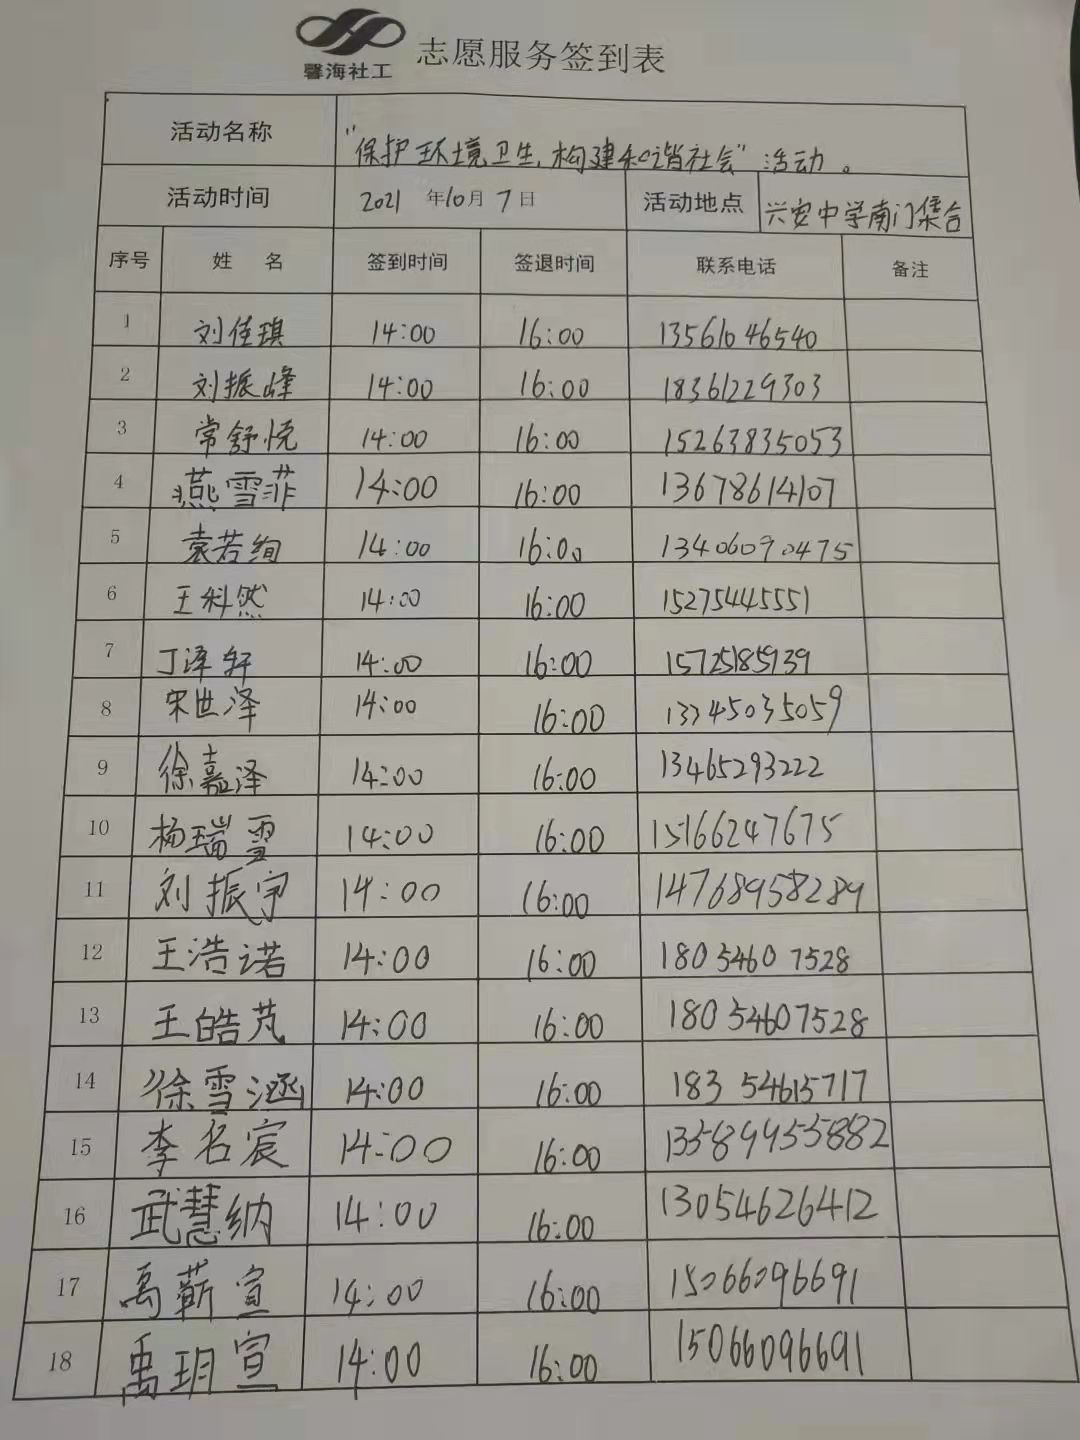 馨海社工 志愿服务签到表
活动名称 "保护环境卫生,构建和谐社会"活动。
活动时间 2021年10月7日 活动地点 兴安中学南门集合
序号 姓名 签到时间 签退时间 联系电话 备注
1 刘佳琪 14:00 16:00 13561046540
2 刘振峰 14:00 16:00 18361229303
3 常舒悦 14:00 16:00 15263835053
4 燕雪菲 14:00 16:00 13678614107
5 袁若绚 14:00 16:00 13406090475
6 王科然 14:00 16:00 15275445551
7 丁泽轩 14:00 16:00 15725185939
8 宋世泽 14:00 16:00 13345035059
9 徐嘉泽 14:00 16:00 13465293222
10 杨瑞雪 14:00 16:00 15166247675
11 刘振宇 14:00 16:00 14768958289
12 王浩诺 14:00 16:00 18054607528
13 王皓芃 14:00 16:00 18054607528
14 徐雪涵 14:00 16:00 18354615717
15 李名宸 14:00 16:00
16 武慧纳 14:00 16:00 13054626412
17 禹蕲宣 14:00 16:00 15066096691
18 禹玥宣 14:00 16:00 15066096691